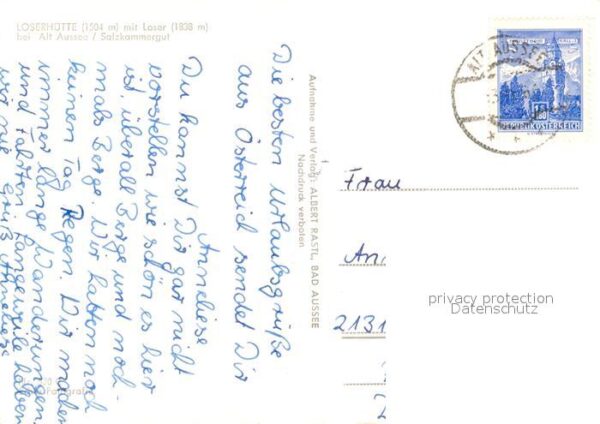 LOSERHÜTTE (1504 m) mit Loser (1838 m)
bei Alt Aussee / Salzkammergut
Die besten Urlaubsgrüße
aus Österreich sendet Dir
Anneliese
Du kannst Dir gar nicht
vorstellen wie schön es hier
ist, überall Berge und noch-
mals Berge. Wir hatten noch
keinen Tag Regen. Wir machen
immer lange Wanderungen
und Fahrten, Langeweile haben
wir nie. Gruß Anneliese
Aufnahme und Verlag: ALBERT RASTL, BAD AUSSEE
Nachdruck verboten
ALT AUSSEE
REPUBLIK ÖSTERREICH
Frau
An
2131
privacy protection
Datenschutz